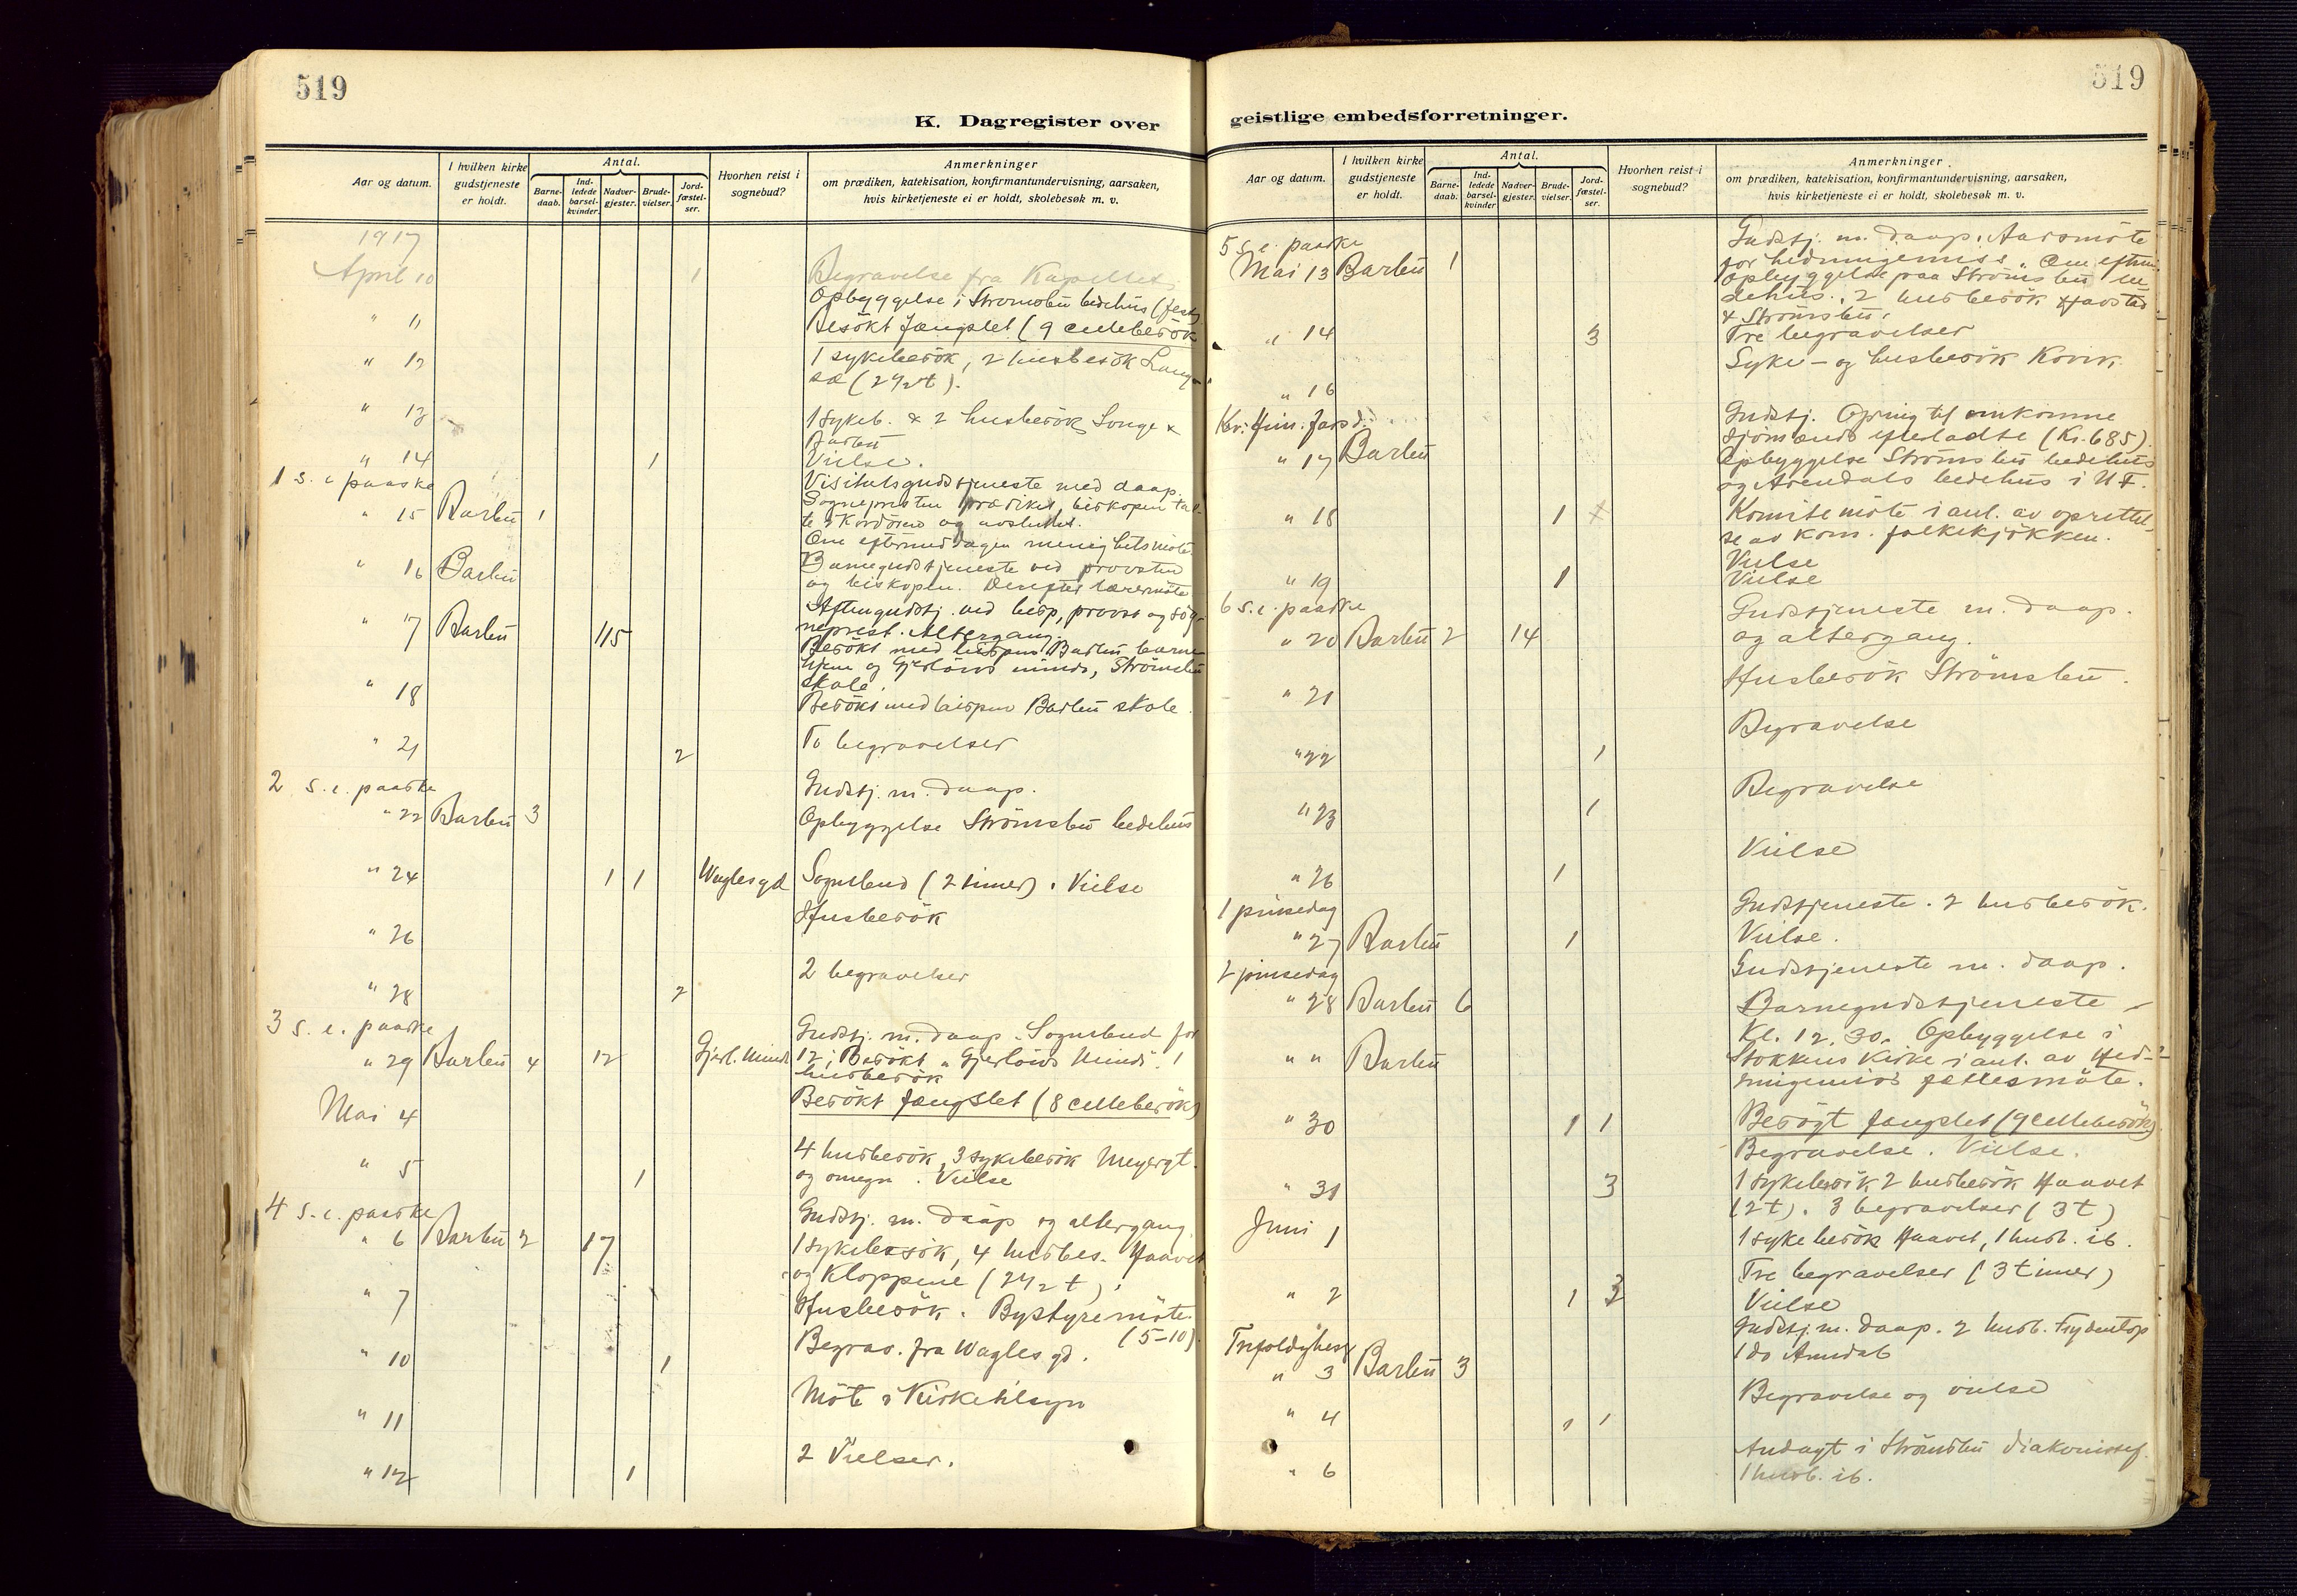 519
K. Dagregister over
Aar og datum.
I hvilken kirke gudstjeneste er holdt.
Antal.
Barnedaab.
Indledede barselkvinder.
Nadvergjester.
Brudevielser.
Jordfæstelser.
Hvorhen reist i sognebud?
Anmerkninger
om prædiken, katekisation, konfirmantundervisning, aarsaken,
hvis kirketjeneste ei er holdt, skolebesøk m. v.
1917
April 10 1 Begravelse fra Kapellet.
Opbyggelse i Strømsbu bedehus (fest)
" 11 Besökt fængslet (9 cellebesök
" 12 1 sykebesök, 2 husbesök Lang-
sæ (2 1/2 t).
" 13 1 sykeb. & 2 husbesök Songe &
Barbu
" 14 1 Vielse.
1 s. e paaske Visitatsgudstjeneste med daap.
" 15 Barbu 1 Sognepresten prædiket, biskopen tal-
te i kordören og avsluttet.
Om eftermiddagen menighetsmöte.
" 16 Barbu Barnegudstjeneste ved provsten
og biskopen. Derefter lærermöte
" 17 Barbu 115 Aftengudstj. ved bisp, provst og sog-
neprest. Altergang.
Besökt med bispen Barbu barne
hjem og Gjerlöws minde, Strömsbu
skole.
" 18 Besökt med bispen Barbu skole.
" 21 2 To begravelser
2 s. e. paaske Gudstj. m. daap.
" 22 Barbu 3 Opbyggelse Strömsbu bedehus
" 24 1 1 Waglesgd Sognebud (2 timer). Vielse
" 26 Husbesök
" 28 2 2 begravelser
3 s. e. paaske Gudstj. m. daap. Sognebud for
" 29 Barbu 4 12 Gjerl. Minde 12; Besökt "Gjerlöws Minde". 1
husbesök
Mai 4 Besökt fængslet (8 cellebesök)
" 5 1 4 husbesök, 3 sykebesök Meyergt.
og omegn. Vielse
4 s. e. paaske Gudstj. m. daap og altergang
" 6 Barbu 2 17 1 sykebesök, 4 husbes. Haavet
og Kloppene (2 1/2 t).
" 7 Husbesök. Bystyremöte
(5-10).
" 10 1 Begrav. fra Waglesgd.
" 11 Möte i Kirketilsyn
" 12 1 2 Vielser.
519
geistlige embedsforretninger.
Aar og datum.
I hvilken kirke gudstjeneste er holdt.
Antal.
Barnedaab.
Indledede barselkvinder
Nadvergjester.
Brudevielser.
Jordfæstelser.
Hvorhen reist i sognebud?
Anmerkninger
om prædiken, katekisation, konfirmantundervisning, aarsaken,
hvis kirketjeneste ei er holdt, skolebesøk m. v.
5 s. e. paaske Gudstj. m. daap. Aarsmöte
Mai 13 Barbu 1 for hedningemis s. Om efterm.
opbyggelse paa Strömsbu be
dehus. 2 husbesök Havstad
& Strömsbu.
" 14 3 Tre begravelser
" 16 Syke- og husbesök Kovik.
Kr. Him. farsd. Gudstj. Ofring til omkomne
" 17 Barbu sjömænds efterladte (Kr. 685).
Opbyggelse Strömsbu bedehus
og Arendals bedehus i U F.
" 18 1 Komitemöte i anl. av oprettel-
se av kom. folkekjökken.
Vielse
" 19 1 Vielse
6 s. e. paaske Gudstjeneste m. daap.
" 20 Barbu 2 14 og altergang.
" 21 Husbesök Strömsbu.
" 22 1 Begravelse
" 23 1 Begravelse
" 26 1 Vielse
1 pinsedag Gudstjeneste. 2 husbesök.
" 27 Barbu 1 Vielse.
2 pinsedag Gudstjeneste m. daap.
" 28 Barbu 6 Barnegudstjeneste
" " Barbu Kl. 12.30. Opbyggelse i
Stokkens Kirke i anl. av Hed-
ningemiss fællesmöte.
" 30 1 1 Besögt fængslet (9 cellebesök)
Begravelse. Vielse.
" 31 3 1 sykebesök 2 husbesök Haavet
(2 t). 3 begravelser (3 t)
Juni 1 1 sykebesök Haavet, 1 husb. ib.
" 2 1 3 Tre begravelser (3 timer)
Vielse
Trefoldighets Gudstj. m. daap. 2 husb. Frydentop
" 3 Barbu 3 1 do Arendal
" 4 1 1 Begravelse og vielse
" 6 Andagt i Strömsbu diakonissef.
1 husb. ib.